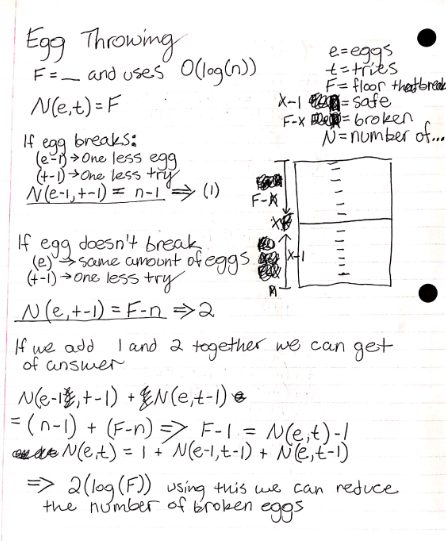 Egg Throwing
F = __ and uses O(log(n))
N(e,t) = F
e = eggs
t = tries
F = floor that break
X-1 = safe
F-x = broken
N = number of...
If egg breaks:
(e-1) → one less egg
(t-1) → one less try
N(e-1,t-1) = n-1 ⇒ (1)
F-x
x
x-1
If egg doesn't break
(e) → same amount of eggs
(t-1) → one less try
N(e,t-1) = F-n ⇒ 2
If we add 1 and 2 together we can get
of answer
N(e-1,t-1) + N(e,t-1)
= (n-1) + (F-n) ⇒ F-1 = N(e,t)-1
N(e,t) = 1 + N(e-1,t-1) + N(e,t-1)
⇒ 2(log(F)) using this we can reduce
the number of broken eggs